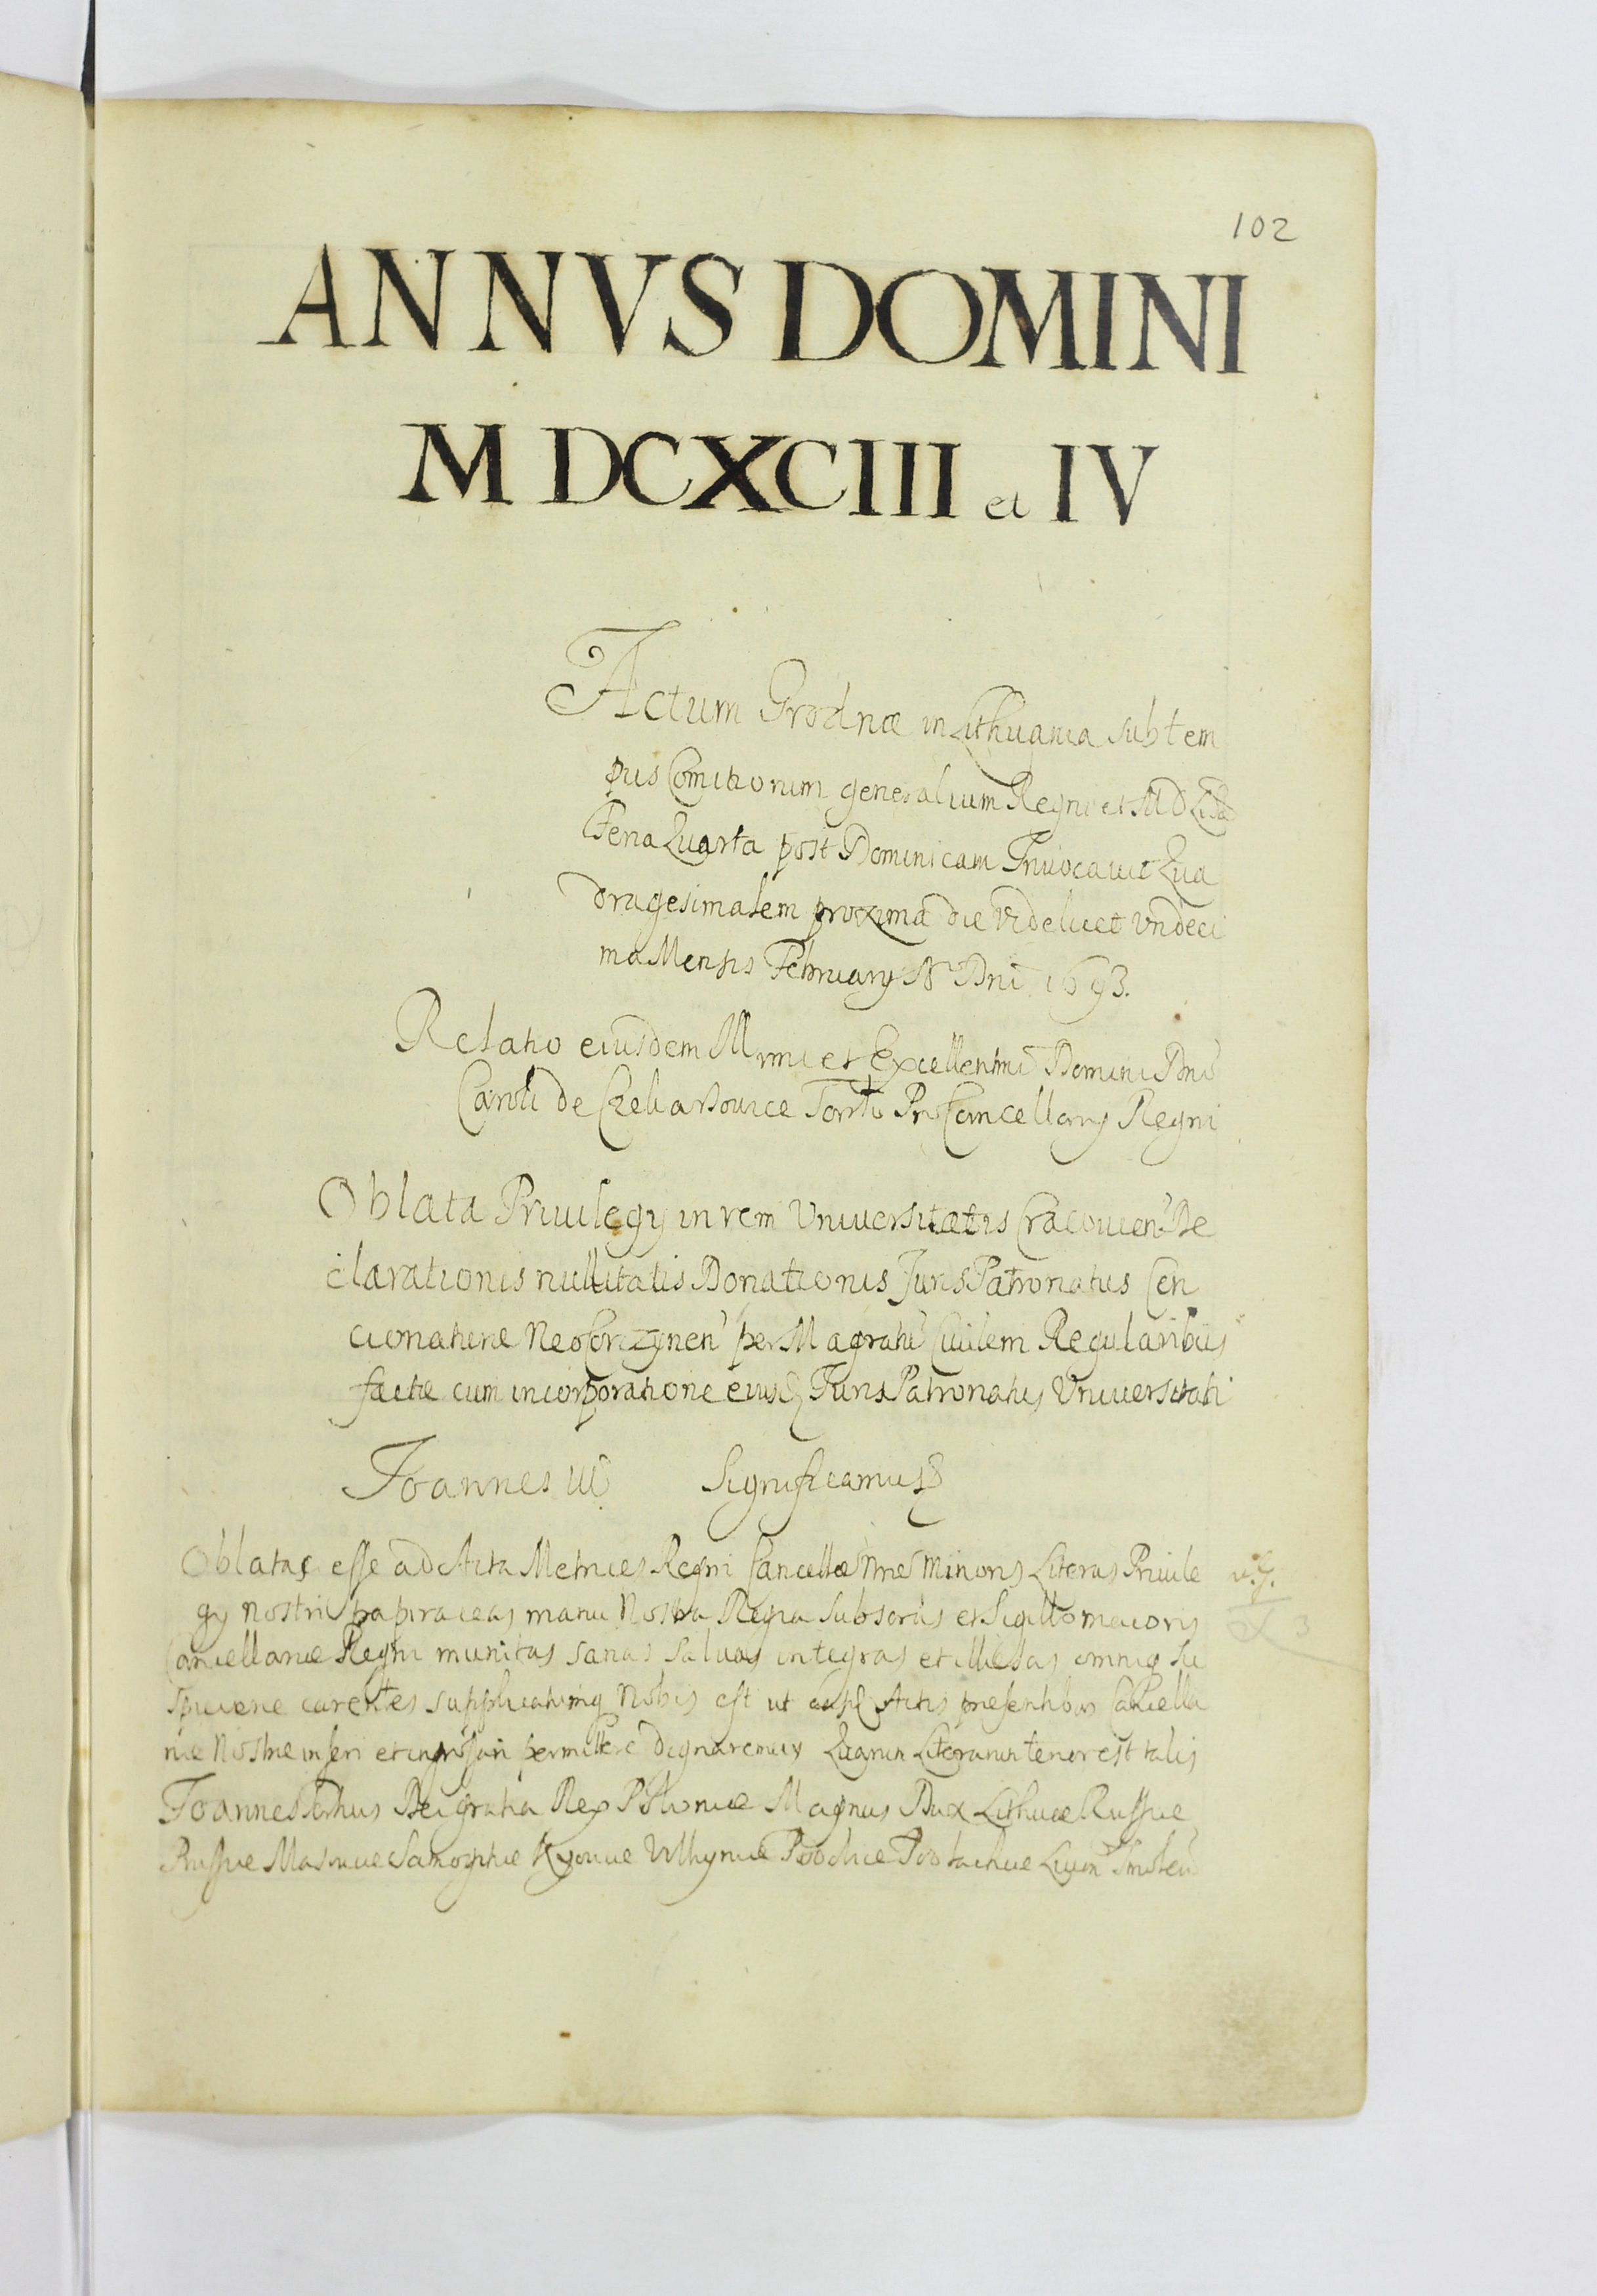 102
ANNVS DOMINI
MDCXCIII et IV
Actum Grodnæ in Lithuania sub tem
pus Comitiorum generalium Regni et M D Litt
Feria Quarta post Dominicam Invocavit Qua
dragesimalem proxima die videlicet vndeci
ma Mensis February A Dni 1693.
Relatio eiusdem Illmi et Excellentmi Domini Dni
Caroli de Tarło ProCancellary Regni
Oblata Priuilegy in rem Vniuersitatis Cracouien De
clarationis nullitatis Donationis Juris Patronatus Con
cionatoriæ NeoCorczynen per Magratu Ciuilem Regularibus
factæ cum incorporatione eiusq Juris Patronatus Vniuersitati
Joannes III Significamus
Oblatas esse ad Acta Metrices Regni Cancellæ Nræ Minoris Literas Priuile
gy nostri papiraceas manu Nostra Regia subscrtas et Sigillo maioris
Cancellariæ Regni munitas sanas saluas integras et illæsas omniq su
spicione carentes supplicatumq Nobis est ut Actis præsentibus Cancella
riæ Nostræ inseri et ingrossari permittere dignaremur Quarum Literarum tenor est talis
Joannes Tertius Dei gratia Rex Poloniæ Magnus Dux Lithuæ Russiæ
Prussiæ Masouiæ Samogitiæ Kyouiæ Volhyniæ Podoliæ Podlachiæ Liuon Smolen